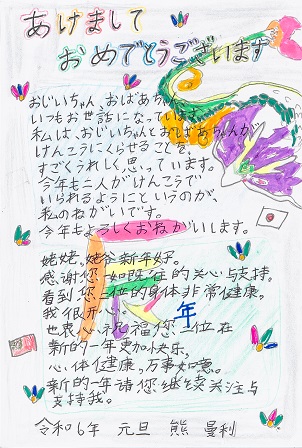 あけまして
おめでとうございます
おじいちゃん、おばあちゃん、
いつもお世話になっています。
私は、おじいちゃんとおばあちゃんが
けんこうにくらせることを、
すごくうれしく思っています。
今年も二人がけんこうで
いられるようにというのが、
私のねがいです。
今年もよろしくおねがいします。
姥姥、姥爷新年好。
感谢您一如既往的关心与支持。
看到您二位的身体非常健康。
我很开心。
也衷心祝福您二位在
新的一年更加快乐,
心体健康。万事如意。
新的一年请您继续关注与
支持我。
年
令和6年 元旦 熊 曼利